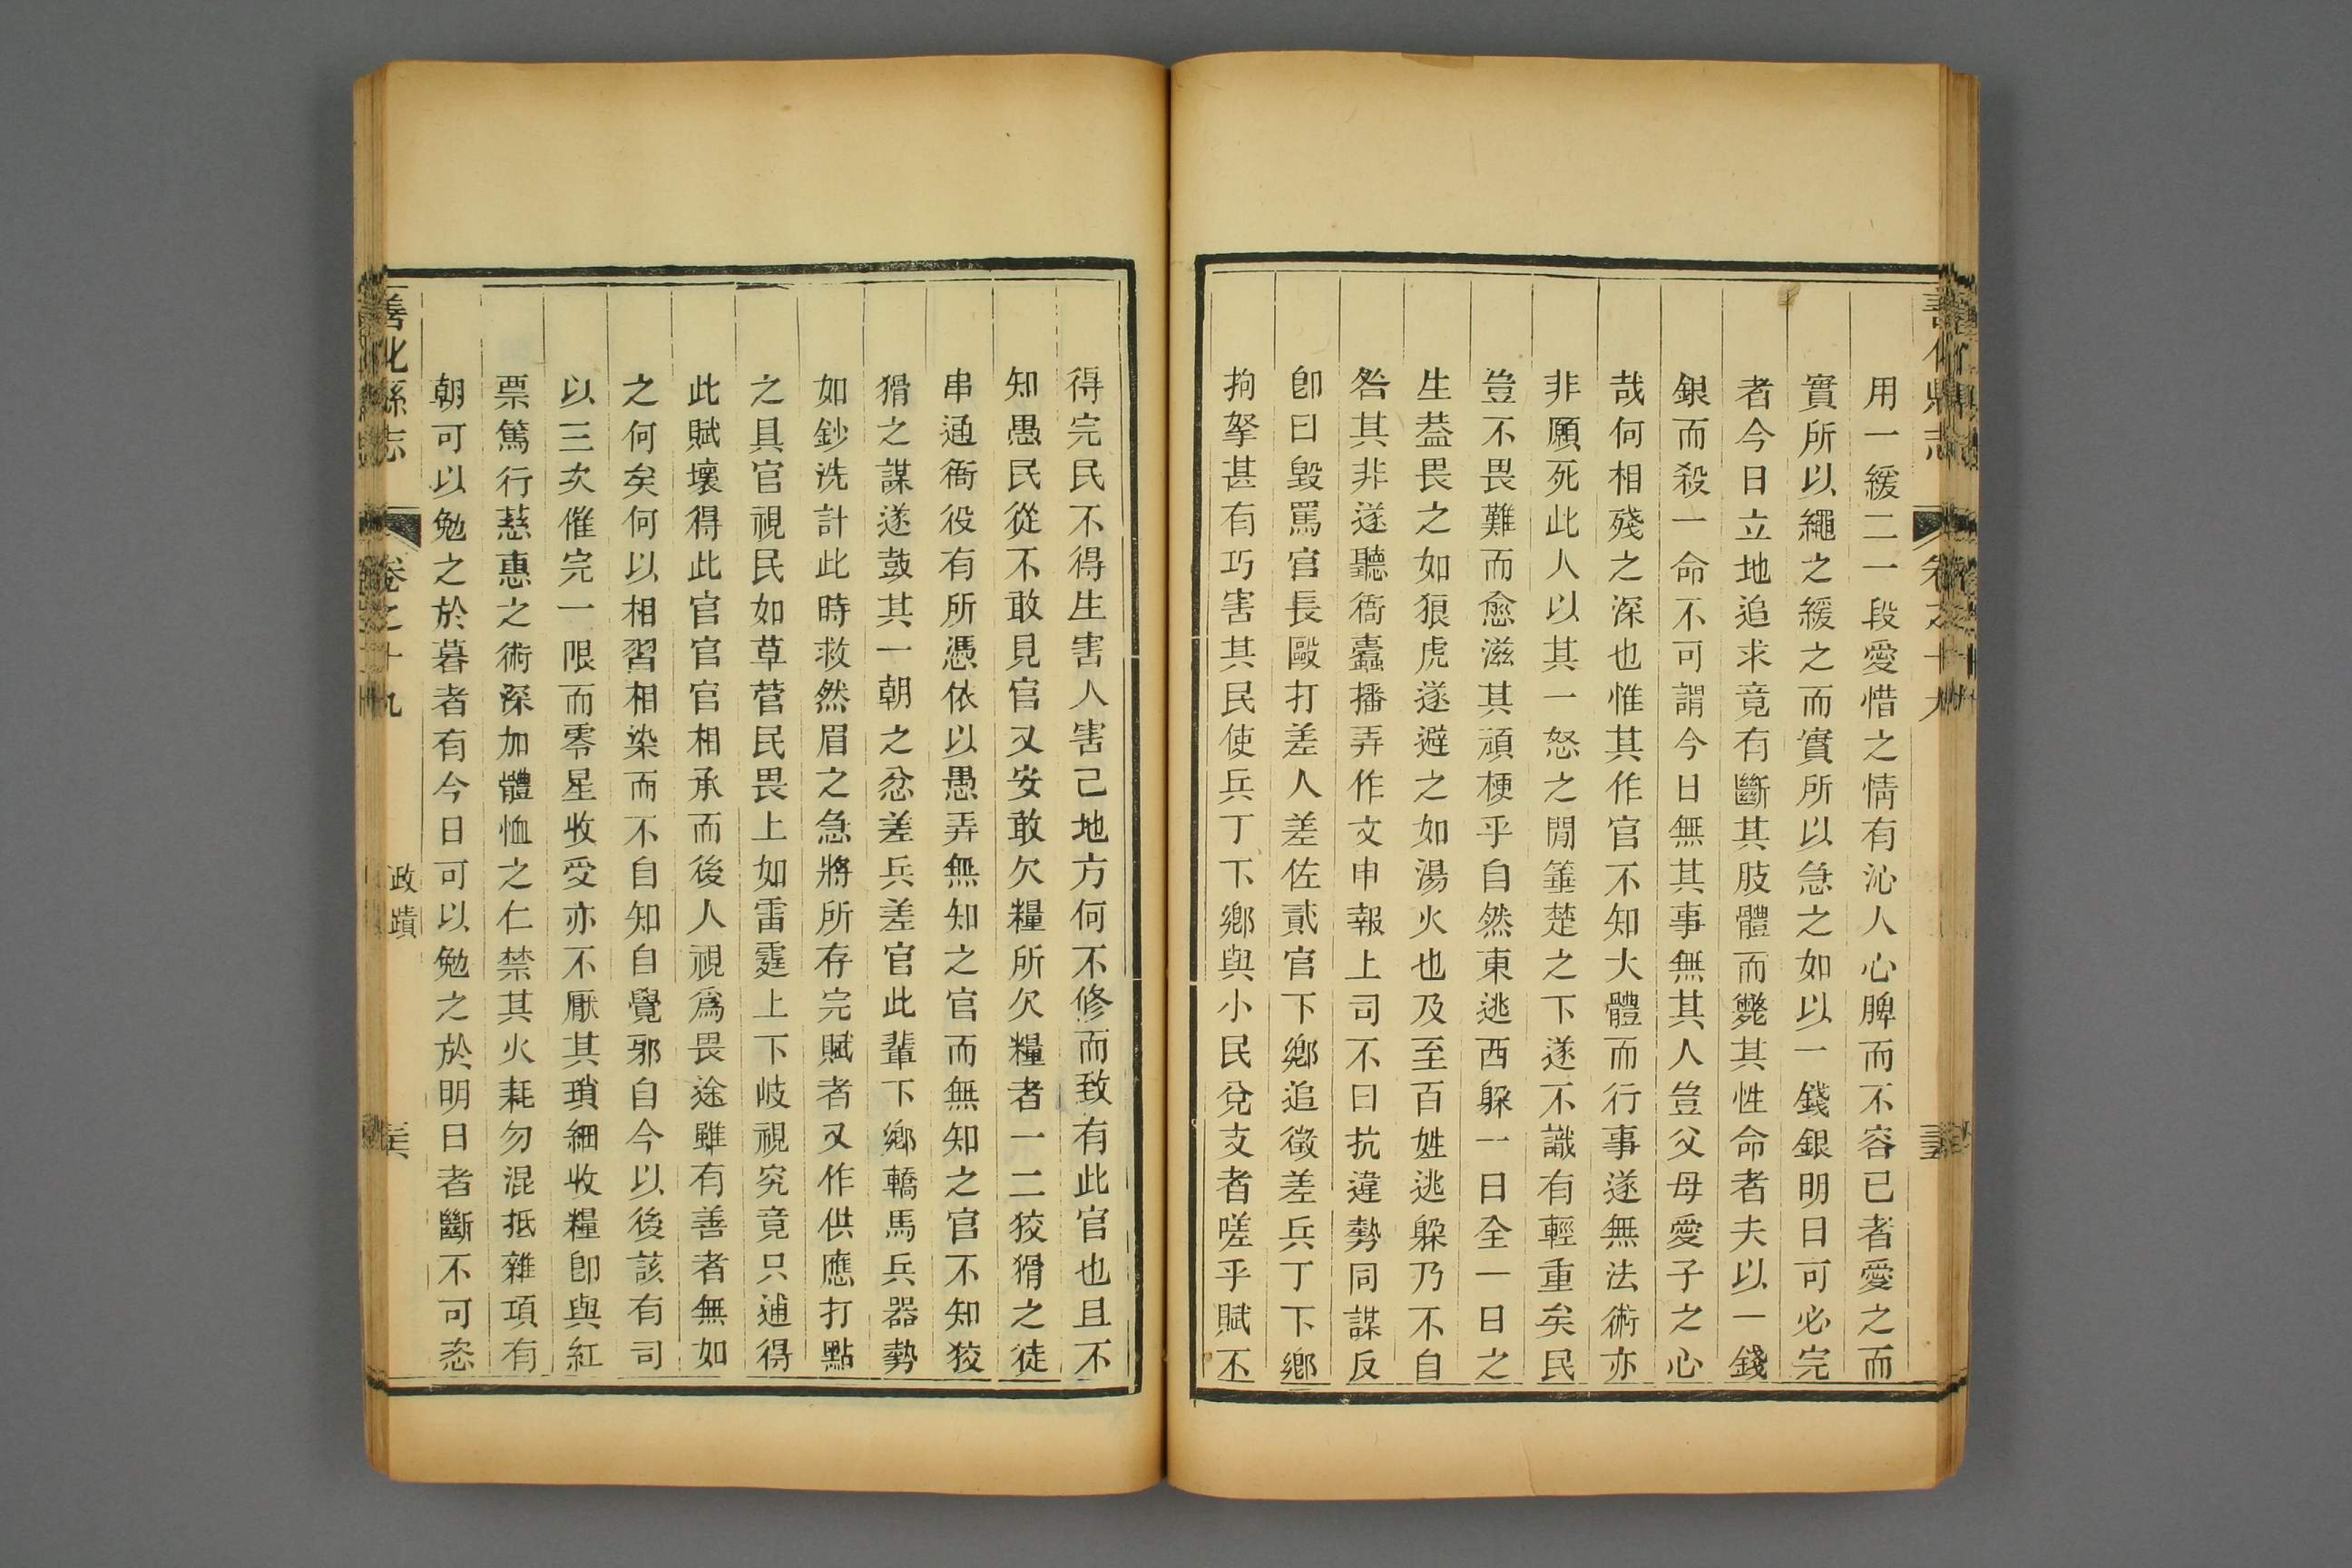 善化縣志
卷之十九
用一緩二一段愛惜之情有沁人心脾而不容已者愛之而
實所以繩之緩之而實所以急之如以一錢銀明日可必完
者今日立地追求竟有斷其肢體而斃其性命者夫以一錢
銀而殺一命不可謂今日無其事無其人豈父母愛子之心
哉何相殘之深也惟其作官不知大體而行事遂無法術亦
非願死此人以其一怒之閒箠楚之下遂不識有輕重矣民
豈不畏難而愈滋其頑梗乎自然東逃西躱一日全一日之
生葢畏之如狼虎遂避之如湯火也及至百姓逃躱乃不自
咎其非遂聽衙蠹播弄作文申報上司不曰抗違勢同謀反
卽曰毀罵官長毆打差人差佐貳官下鄉追徵差兵丁下鄉
拘拏甚有巧害其民使兵丁下鄉與小民兌支者嗟乎賦不
得完民不得生害人害己地方何不修而致有此官也且不
知愚民從不敢見官又安敢欠糧所欠糧者一二狡猾之徒
串通衙役有所憑依以愚弄無知之官而無知之官不知狡
猾之謀遂鼓其一朝之忿差兵差官此輩下鄉轎馬兵器勢
如鈔洗計此時救然眉之急將所存完賦者又作供應打點
之具官視民如草菅民畏上如雷霆上下岐視究竟只逋得
此賦壞得此官官官相承而後人視爲畏途雖有善者無如
之何矣何以相習相染而不自知自覺邪自今以後該有司
以三次催完一限而零星收受亦不厭其瑣細收糧卽與紅
票篤行慈惠之術深加體恤之仁禁其火耗勿混抵雜項有
朝可以勉之於暮者有今日可以勉之於明日者斷不可恣
善化縣志
卷之十九
政蹟